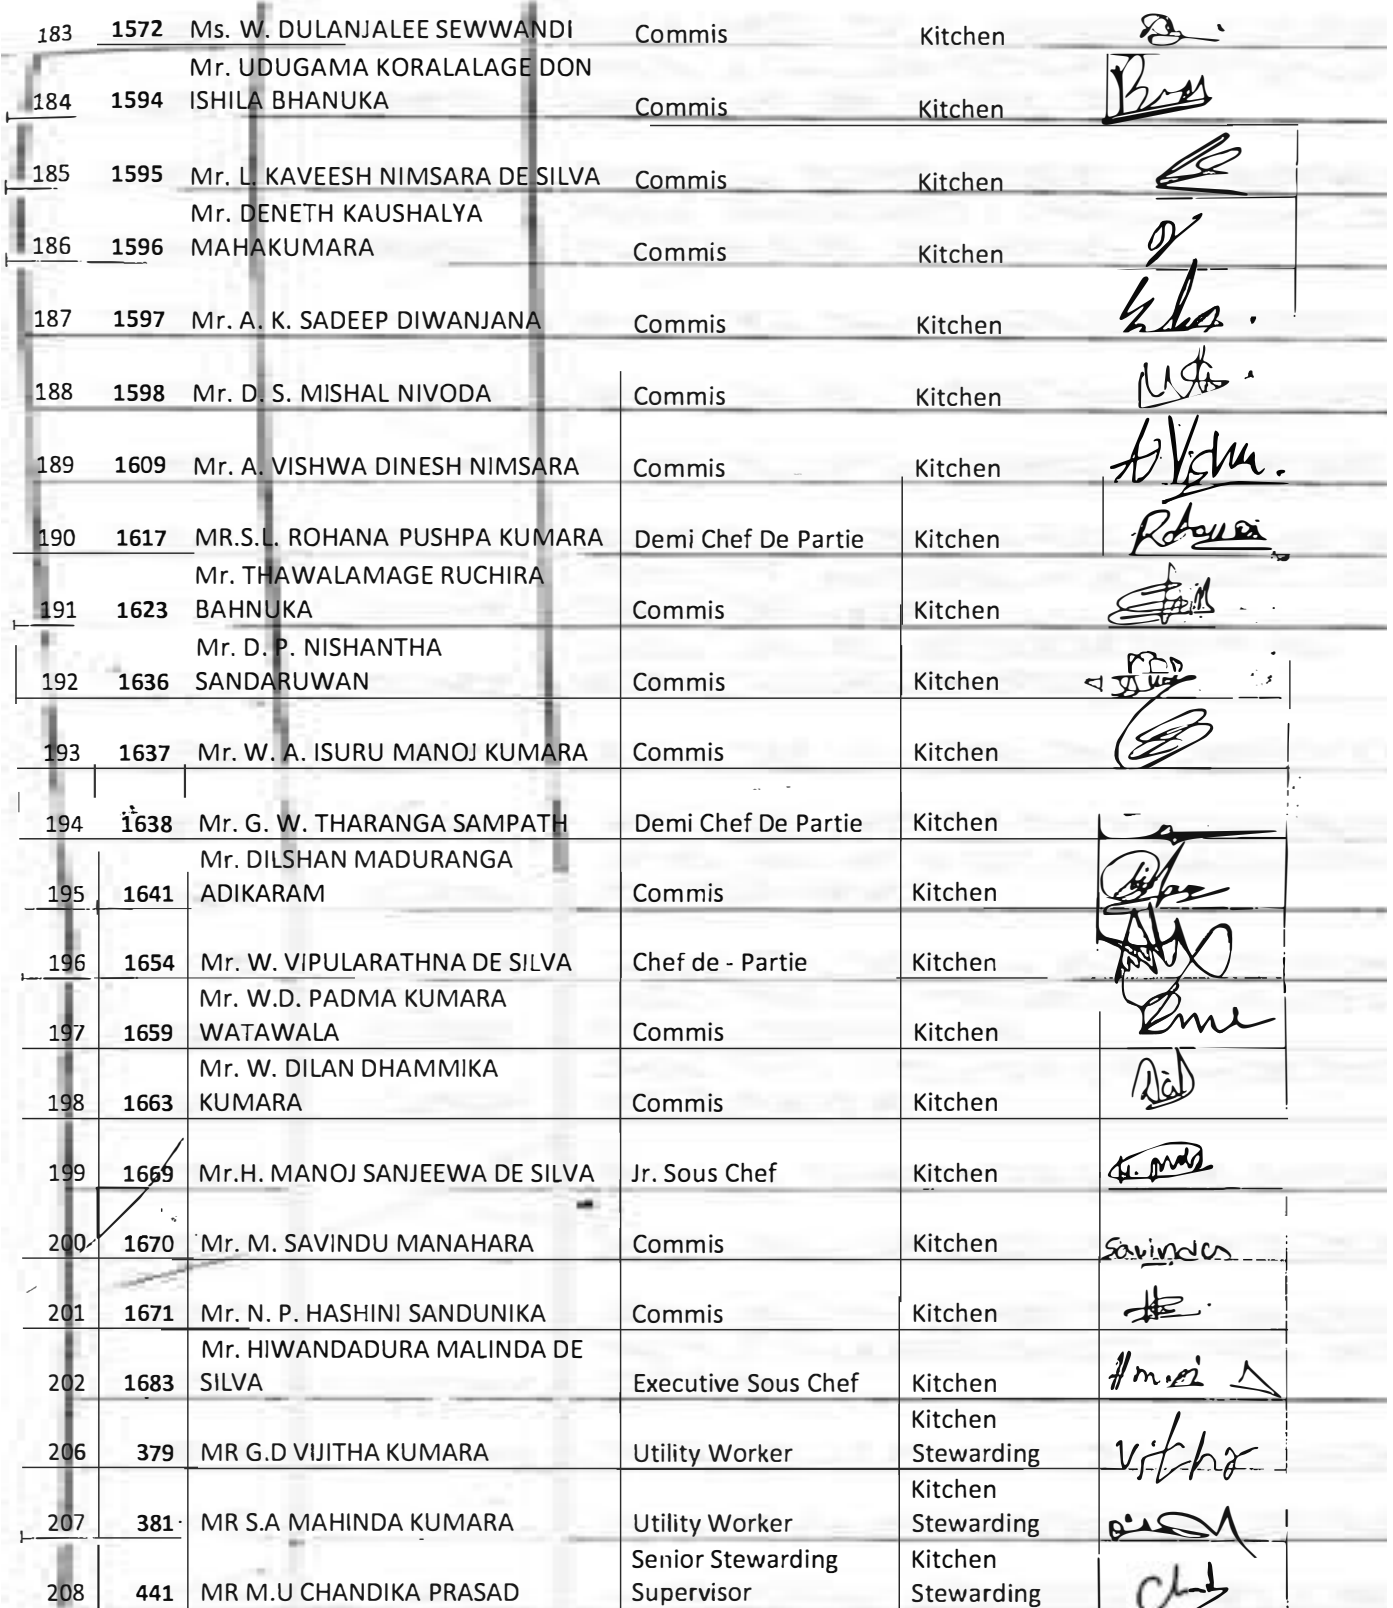 183 1572 Ms. W. DULANJALEE SEWWANDI Commis Kitchen
Mr. UDUGAMA KORALALAGE DON
184 1594 ISHILA BHANUKA Commis Kitchen
185 1595 Mr. L. KAVEESH NIMSARA DE SILVA Commis Kitchen
Mr. DENETH KAUSHALYA
186 1596 MAHAKUMARA Commis Kitchen
187 1597 Mr. A. K. SADEEP DIWANJANA Commis Kitchen
188 1598 Mr. D. S. MISHAL NIVODA Commis Kitchen
189 1609 Mr. A. VISHWA DINESH NIMSARA Commis Kitchen
190 1617 MR.S.L. ROHANA PUSHPA KUMARA Demi Chef De Partie Kitchen
Mr. THAWALAMAGE RUCHIRA
191 1623 BAHNUKA Commis Kitchen
Mr. D. P. NISHANTHA
192 1636 SANDARUWAN Commis Kitchen
193 1637 Mr. W. A. ISURU MANOJ KUMARA Commis Kitchen
194 1638 Mr. G. W. THARANGA SAMPATH Demi Chef De Partie Kitchen
Mr. DILSHAN MADURANGA
195 1641 ADIKARAM Commis Kitchen
196 1654 Mr. W. VIPULARATHNA DE SILVA Chef de - Partie Kitchen
Mr. W.D. PADMA KUMARA
197 1659 WATAWALA Commis Kitchen
Mr. W. DILAN DHAMMIKA
198 1663 KUMARA Commis Kitchen
199 1669 Mr.H. MANOJ SANJEEWA DE SILVA Jr. Sous Chef Kitchen
200 1670 Mr. M. SAVINDU MANAHARA Commis Kitchen
201 1671 Mr. N. P. HASHINI SANDUNIKA Commis Kitchen
Mr. HIWANDADURA MALINDA DE
202 1683 SILVA Executive Sous Chef Kitchen
Kitchen
206 379 MR G.D VIJITHA KUMARA Utility Worker Stewarding
Kitchen
207 381 MR S.A MAHINDA KUMARA Utility Worker Stewarding
Senior Stewarding Kitchen
208 441 MR M.U CHANDIKA PRASAD Supervisor Stewarding